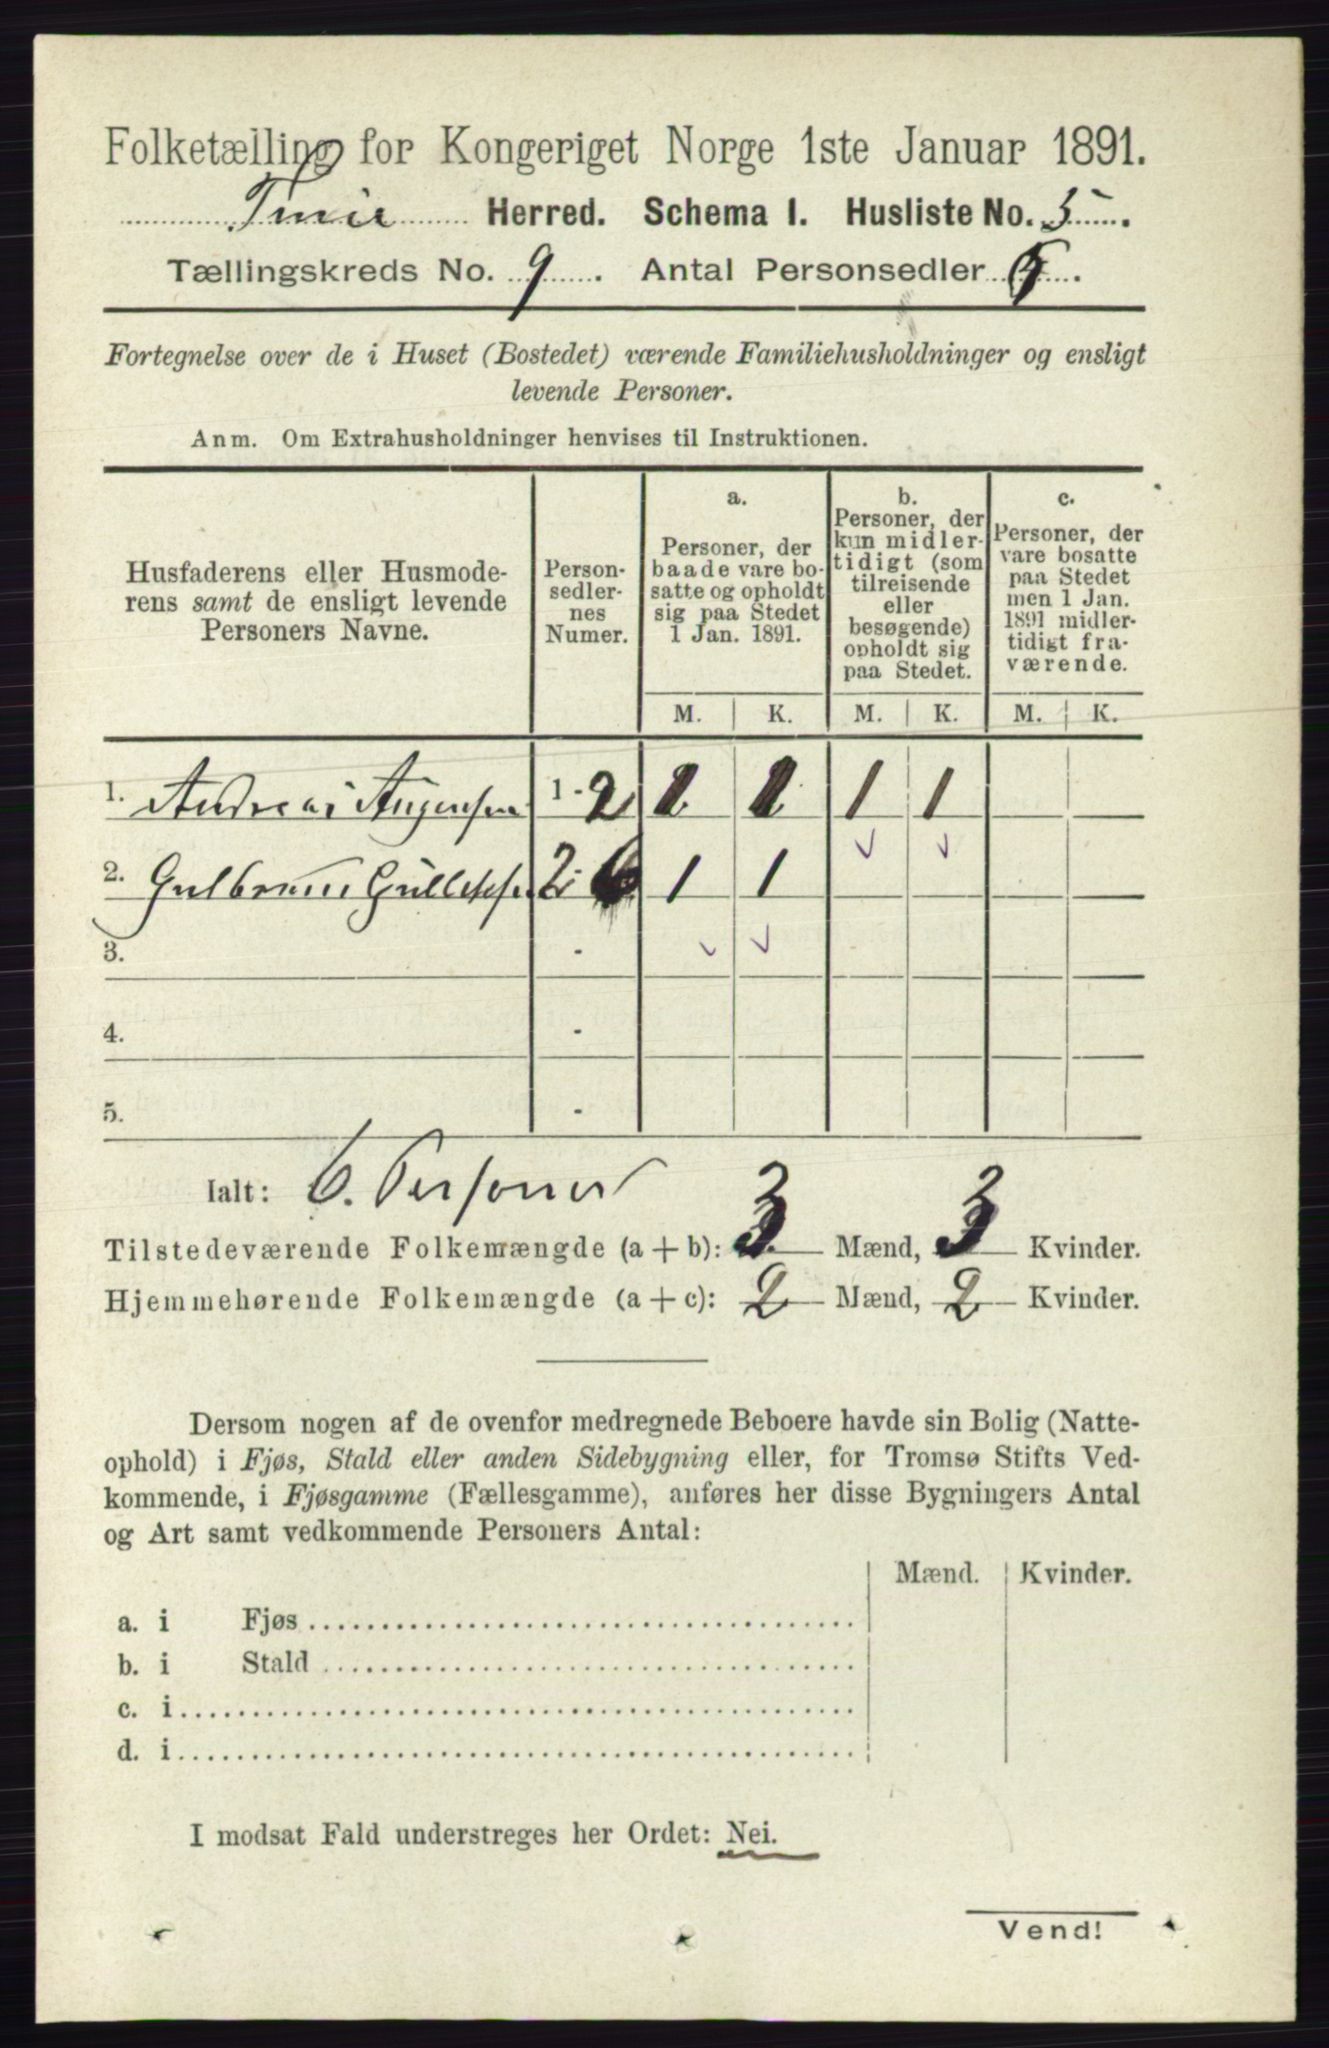 Folketælling for Kongeriget Norge 1ste Januar 1891.
Herred. Schema I. Husliste No. 5.
Tællingskreds No. 9. Antal Personsedler 6.
Fortegnelse over de i Huset (Bostedet) værende Familiehusholdninger og ensligt
levende Personer.
Anm. Om Extrahusholdninger henvises til Instruktionen.
Husfaderens eller Husmode-
rens samt de ensligt levende
Personers Navne.
Person-
sedler-
nes
Numer.
a.
Personer, der
baade vare bo-
satte og opholdt
sig paa Stedet
1 Jan. 1891.
b.
Personer, der
kun midler-
tidigt (som
tilreisende
eller
besøgende)
opholdt sig
paa Stedet.
c.
Personer, der
vare bosatte
paa Stedet
men 1 Jan.
1891 midler-
tidigt fra-
værende.
M. K. M. K. M. K.
1. Andreas 1 - 2 1 1 1 1
2. 1 1
3. -
4. -
5. -
Ialt: 6. Personer
Tilstedeværende Folkemængde (a + b): 3 Mænd, 3 Kvinder.
Hjemmehørende Folkemængde (a + c): 2 Mænd, 2 Kvinder.
Dersom nogen af de ovenfor medregnede Beboere havde sin Bolig (Natte-
ophold) i Fjøs, Stald eller anden Sidebygning eller, for Tromsø Stifts Ved-
kommende, i Fjøsgamme (Fællesgamme), anføres her disse Bygningers Antal
og Art samt vedkommende Personers Antal:
Mænd. Kvinder.
a. i Fjøs
b. i Stald
c. i
d. i
I modsat Fald understreges her Ordet: Nei.
Vend!